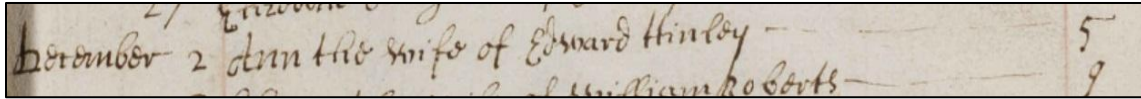 27
December 2 Ann the wife of Edward Hinley - 5
of William Roberts - 9